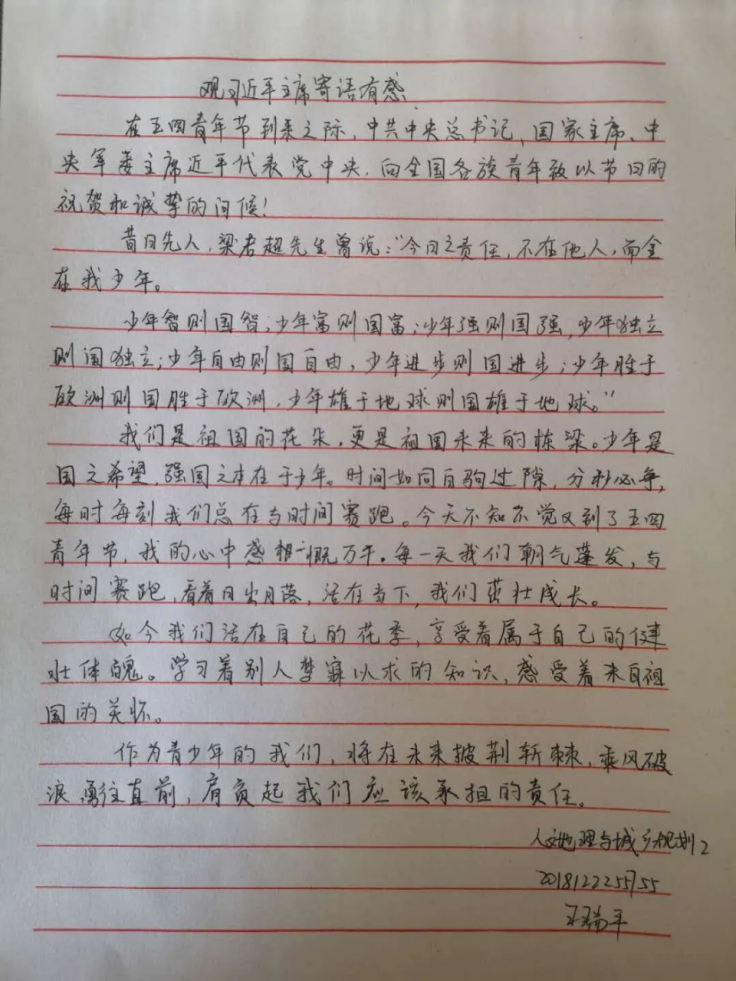 观习近平主席寄语有感
在五四青年节到来之际，中共中央总书记、国家主席、中
央军委主席近平代表党中央，向全国各族青年致以节日的
祝贺和诚挚的问候！
昔日先人，梁启超先生曾说："今日之责任，不在他人，而全
在我少年。
少年智则国智；少年富则国富；少年强则国强，少年独立
则国独立；少年自由则国自由，少年进步则国进步；少年胜于
欧洲则国胜于欧洲，少年雄于地球则国雄于地球。"
我们是祖国的花朵，更是祖国未来的栋梁。少年是
国之希望，强国之本在于少年。时间如同白驹过隙，分秒必争，
每时每刻我们总在与时间赛跑。今天不知不觉又到了五四
青年节，我的心中感慨万千。每一天我们朝气蓬发，与
时间赛跑，看着日出月落，活在当下，我们茁壮成长。
如今我们活在自己的花季，享受着属于自己的健
壮体魄。学习着别人梦寐以求的知识，感受着来自祖
国的关怀。
作为青少年的我们，将在未来披荆斩棘，乘风破
浪勇往直前，肩负起我们应该承担的责任。
人文地理与城乡规划2
王瑞平